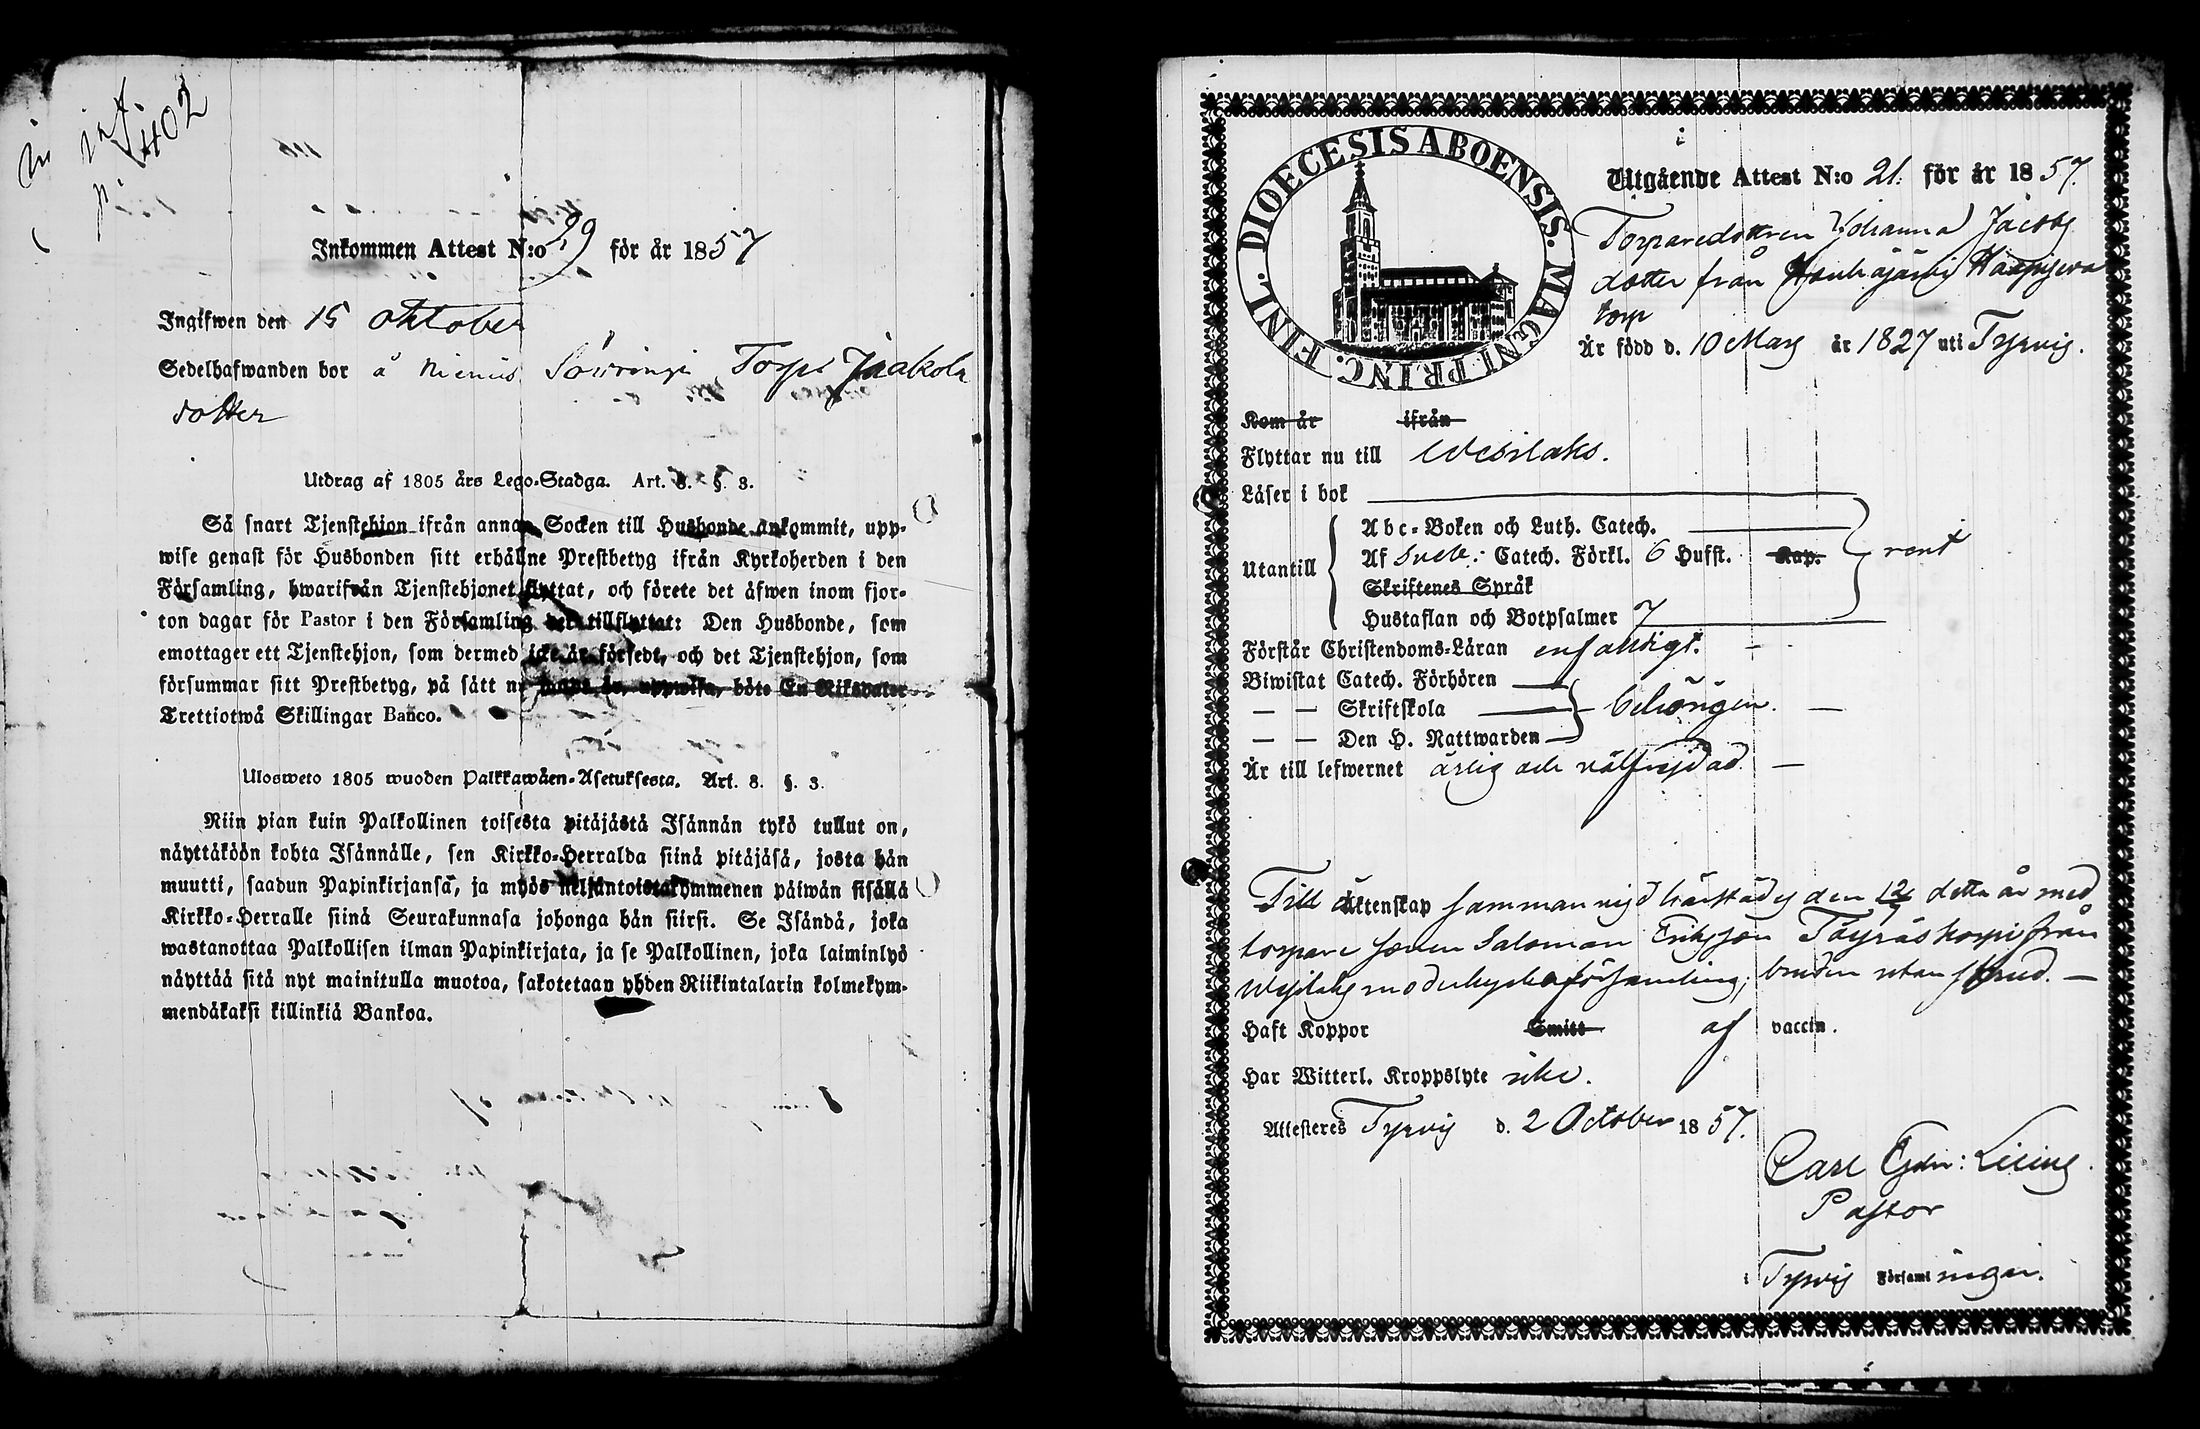 inf.
p. 402
Inkommen Attest N:o 99 för år 1857
Ingifwen den 15 oktober
Sedelhafwanden bor å Torp Jaakola
dotter
Utdrag af 1805 års Lego-Stadga. Art. 8. §. 3.
Så snart Tjenstehjon ifrån annan Socken till Husbonde ankommit, upp-
wise genast för Husbonden sitt erhållne Prestbetyg ifrån Kyrkoherden i den
Församling, hwarifrån Tjenstehjonet flyttat, och förete det äfwen inom fjor-
ton dagar för Pastor i den Församling det tillflyttat: Den Husbonde, som
emottager ett Tjenstehjon, som dermed icke är försedt, och det Tjenstehjon, som
försummar sitt Prestbetyg, på sätt nu sagdt är, uppwisa, böte En Riksdaler
Trettiotwå Skillingar Banco.
Ulosweto 1805 wuoden Palkkawäen-Asetuksesta. Art. 8. §. 3.
Niin pian kuin Palkollinen toisesta pitäjästä Isännän tykö tullut on,
näyttäköön kohta Isännälle, sen Kirkko-Herralda siinä pitäjäsä, josta hän
muutti, saadun Papinkirjansa, ja myös neljäntoistakymmenen päiwän sisällä
Kirkko-Herralle siinä Seurakunnasa johonga hän siirsi. Se Isändä, joka
wastanottaa Palkollisen ilman Papinkirjata, ja se Palkollinen, joka laiminlyö
näyttää sitä nyt mainitulla muotoa, sakotetaan yhden Riikintalarin kolmekym-
mendäkaksi killinkiä Bankoa.
DIOECESIS ABOENSIS. MAGNI PRINC. FINL.
Utgående Attest N:o 21. för år 1857.
Torparedottren Johanna Jacobs
dotter från
torp
Är född d. 10 Mars år 1827 uti Tyrvis.
Kom år ifrån
Flyttar nu till Wesilaks.
Läser i bok
Abc-Boken och Luth. Catech.
Utantill Af Sveb: Catech. Förkl. 6 Hufst. Kap. rent
Skriftenes Språk
Hustaflan och Botpsalmer 7
Förstår Christendoms-Läran enfaldigt.
Biwistat Catech. Förhören
— — Skriftskola behörigen.
— — Den H. Nattwarden
Är till lefwernet ärlig och välfrejdad.
Till äktenskap sammanvigd härstädes den 12/7 detta år med
torpare sonen Salomon Eriksson Töyräskorpi från
Wesilaks moderkyrko församling; bruden utan skrud.
Haft Koppor Smitt af vaccin.
Har Witterl. Kroppslyte icke.
Attesteres Tyrvis d. 2 October 1857.
Carl Lilius.
Pastor
i Tyrvis Församlingar.